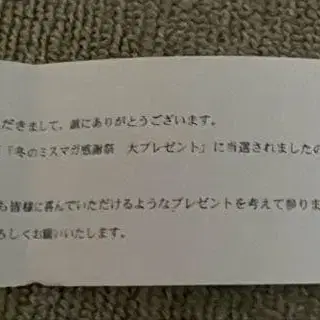 だきまして、誠にありがとうございます。
「冬のミスマガ感謝祭　大プレゼント」に当選されましたの
も皆様に喜んでいただけるようなプレゼントを考えて参りま
ろしくお願いいたします。